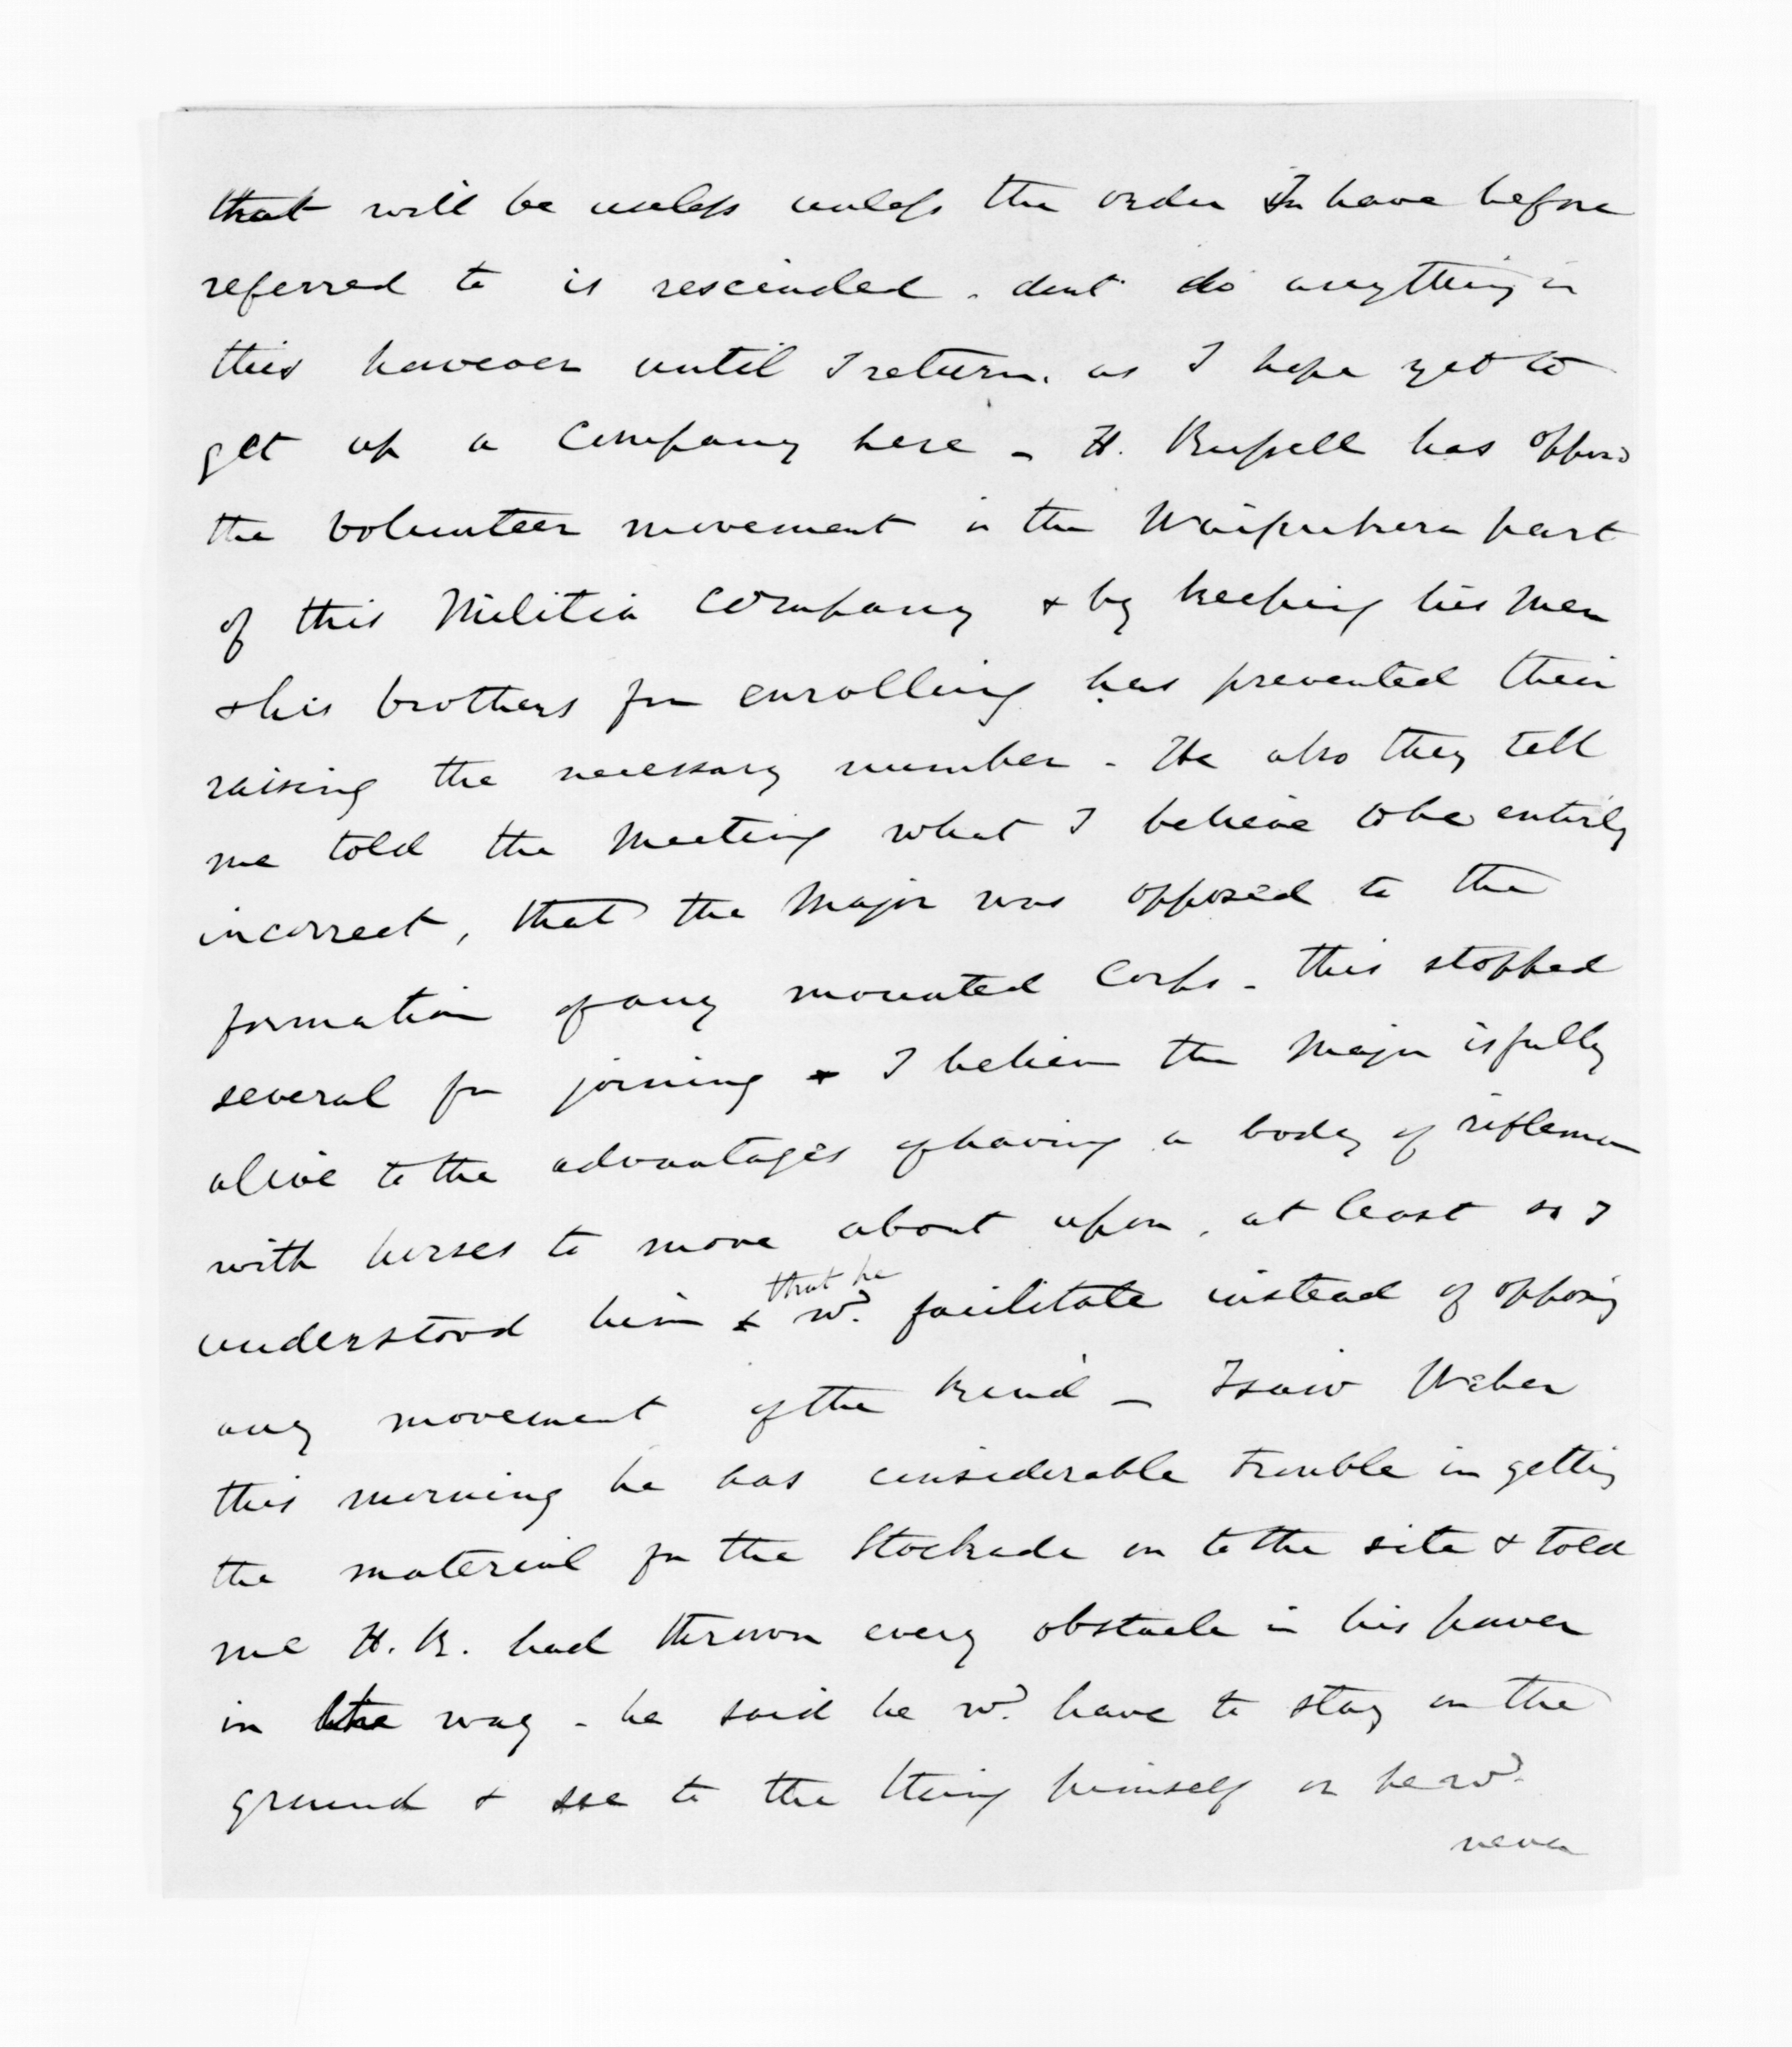 that will be useless unless the order I have before
referred to is rescinded. dont do anything in
this however until I return. as I hope yet to
get up a Company here - H. Russell has oppos'd
the Volunteer movement in the Waipukura part
of this Militia Company & by keeping his Men
& his brothers fm enrolling has prevented their
raising the necessary number - He also they tell
me told the Meeting what I believe to be entirely
incorrect, that the Major was opposed to the
formation of any mounted Corps - this stopped
several fm joining & I believe the Major is fully
alive to the advantages of having a body of riflemen
with horses to move about upon, at least so I
understood him & that he wd. facilitate instead of opposing
any movement of the kind - I saw Weber
this morning he has considerable trouble in getting
the material for the Stockade on to the site & told
me H. R. had thrown every obstacle in his power
in the way - he said he wd. have to stay on the
ground & see to the thing himself or he wd.
never